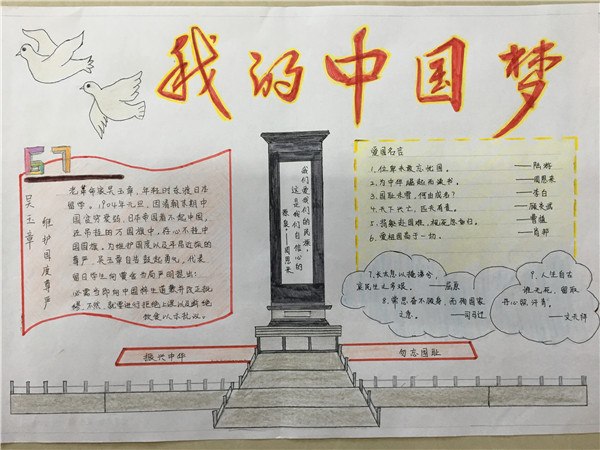 我的中国梦
吴玉章 维护国度尊严
老革命家吴玉章,年轻时东渡日本
留学。1904年元旦,因清朝末期中
国贫穷衰弱,日本帝国看不起中国,
在吊挂的万国旗中,存心不挂中
国国旗。为维护国度以及平易近族的
尊严,吴玉章自告鼓起勇气,代表
留日学生向黉舍当局严明提出:
必需当即向中国粹生道歉并改正批
缪,不然,就要进行拒绝上课以及断绝
饮食以示抗议。
我们爱我们的民族,
这是我们自信心的
源泉。——周恩来
爱国名言
1.位卑未敢忘忧国。 ——陆游
2.为中华崛起而读书。 ——周恩来
3.国耻未雪,何由成名? ——李白
4.天下兴亡,匹夫有责。 ——顾炎武
5.捐躯赴国难,视死忽如归。 ——曹植
6.爱祖国高于一切。 ——肖邦
7.长太息以掩涕兮,
哀民生之多艰。 ——屈原
8.常思奋不顾身,而殉国家
之急。 ——司马迁
9.人生自古
谁无死,留取
丹心照汗青。
——文天祥
振兴中华
勿忘国耻